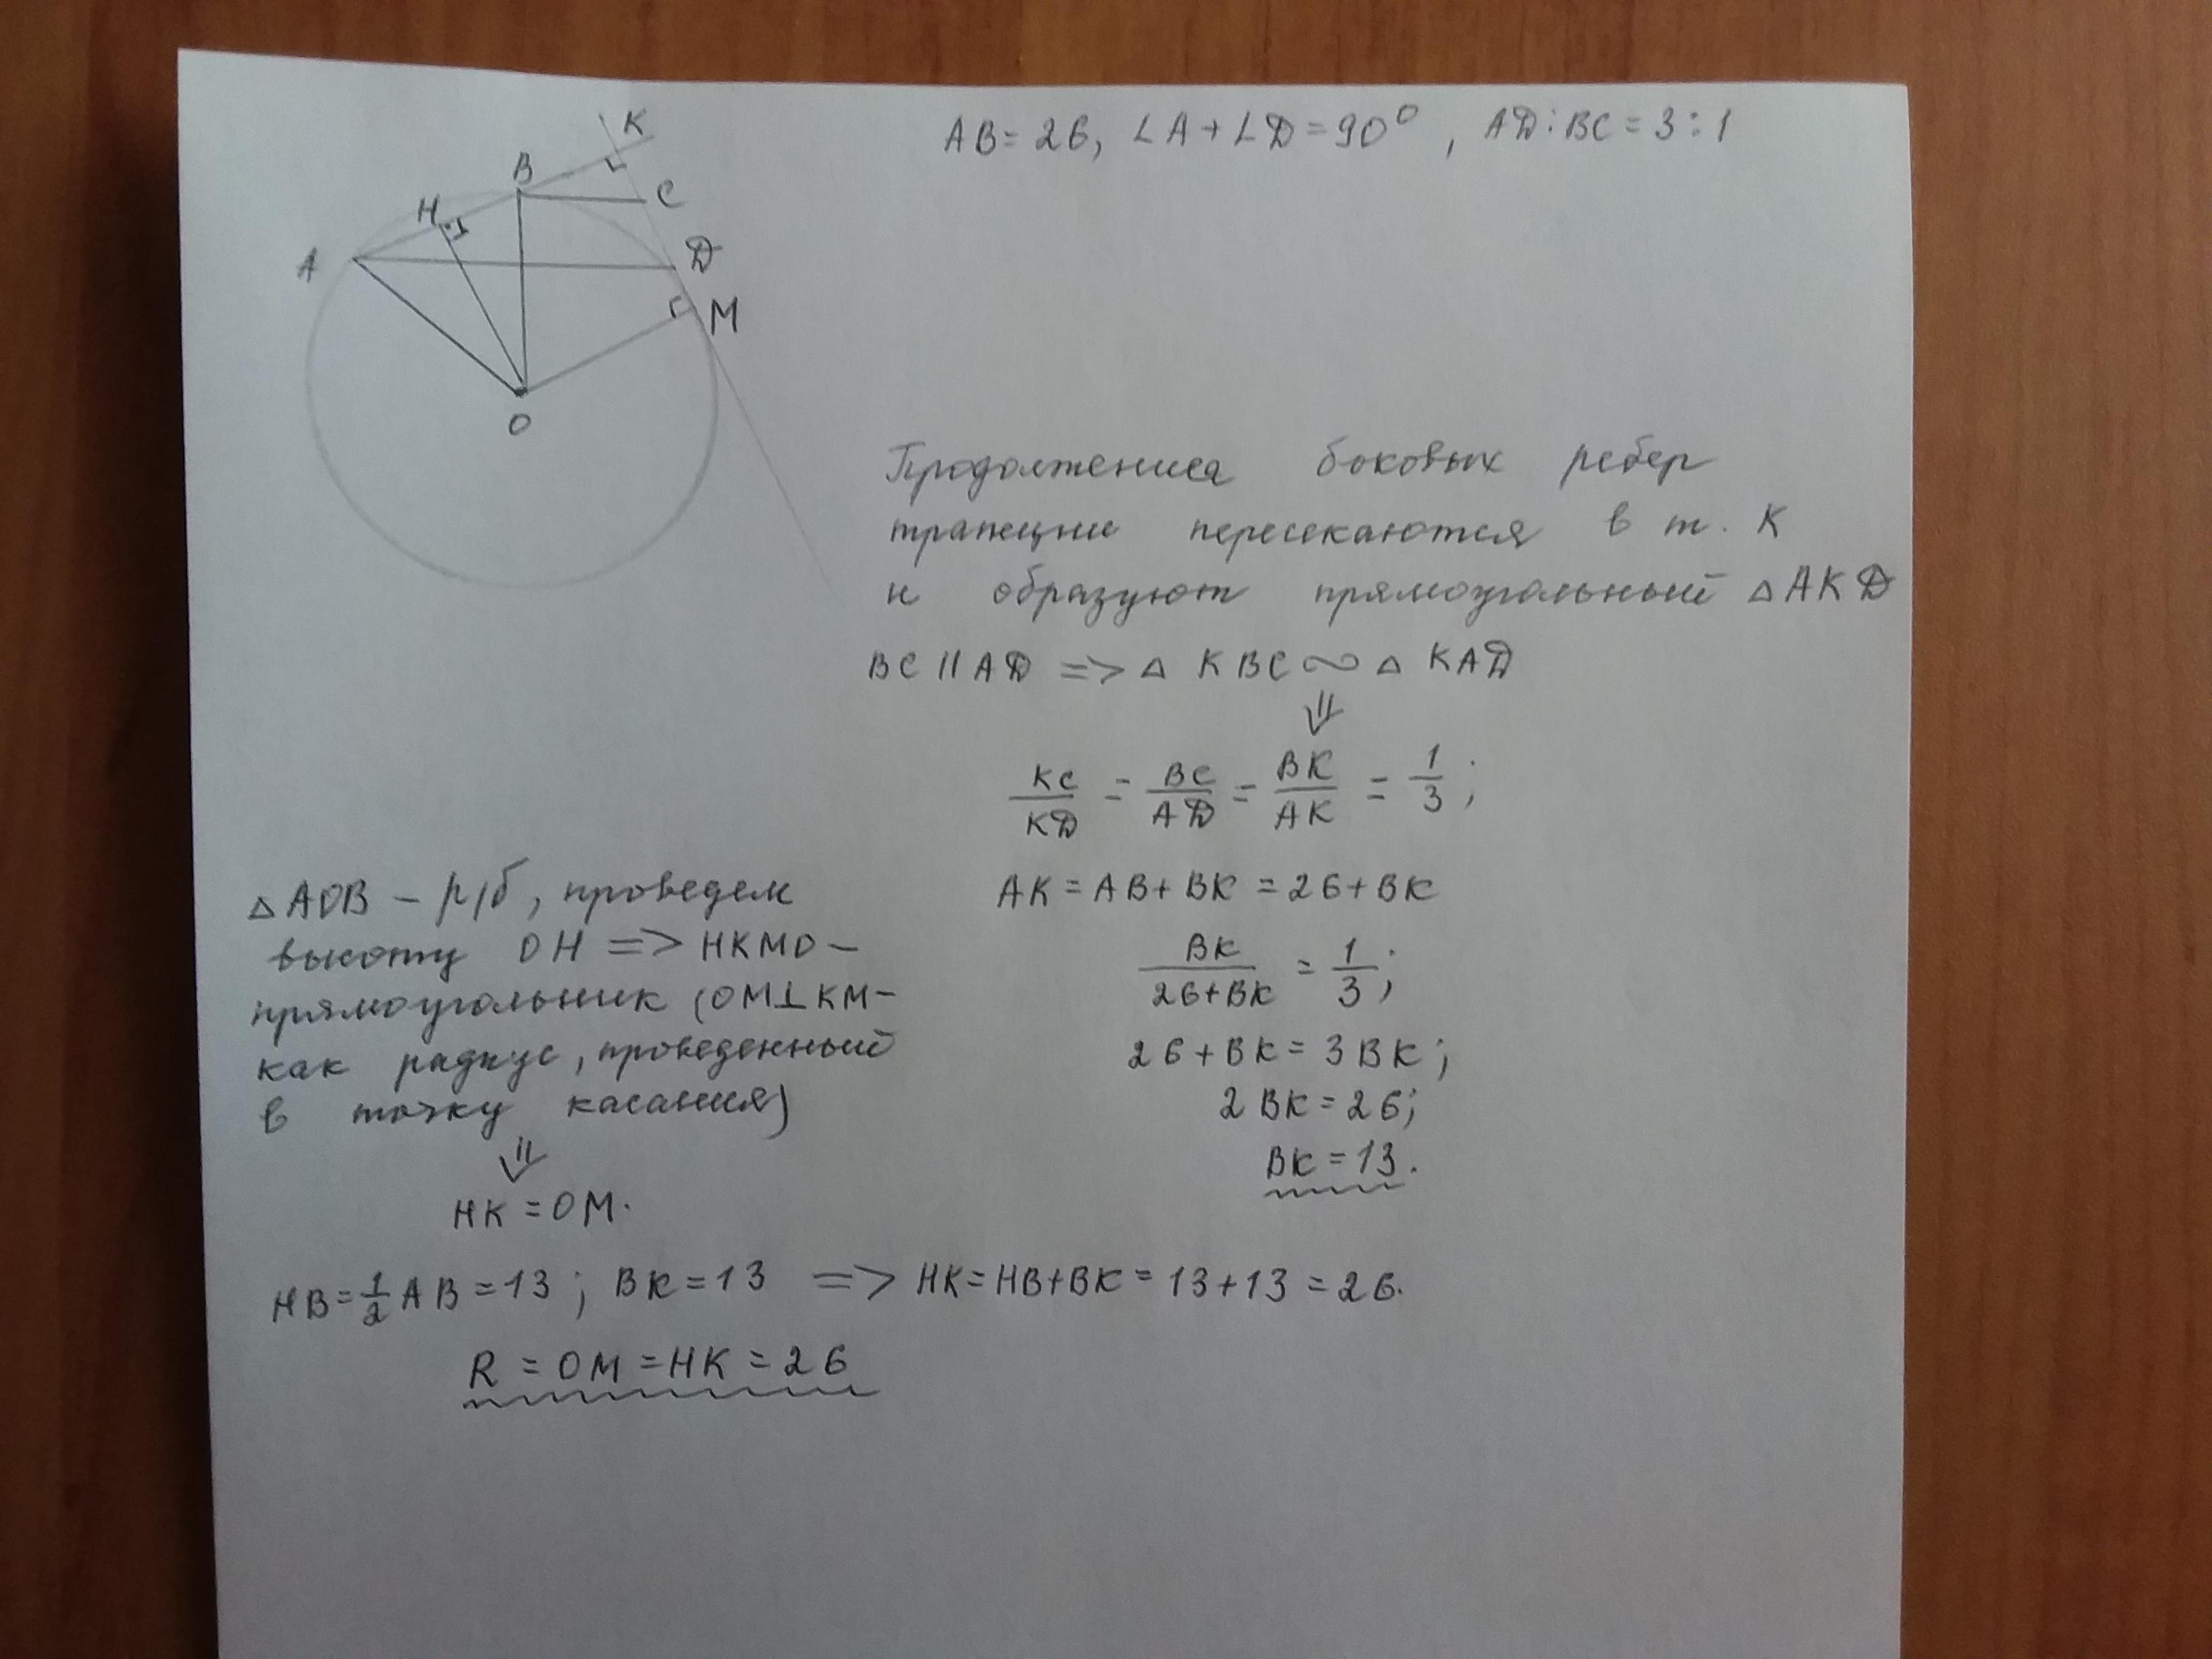 K
B
C
H
A
D
M
O
AB = 26, ∠A + ∠D = 90°, AD : BC = 3 : 1
Продолжения боковых ребер
трапеции пересекаются в т. K
и образуют прямоугольный △AKD
BC || AD => △ KBC ∾ △ KAD
⇓
KC/KD = BC/AD = BK/AK = 1/3;
AK = AB + BK = 26 + BK
BK/(26+BK) = 1/3;
26 + BK = 3BK;
2BK = 26;
BK = 13.
△AOB – р/б, проведем
высоту OH => HKMO –
прямоугольник (OM⊥KM –
как радиус, проведенный
в точку касания)
⇓
HK = OM.
HB = 1/2 AB = 13; BK = 13 => HK = HB + BK = 13 + 13 = 26.
R = OM = HK = 26